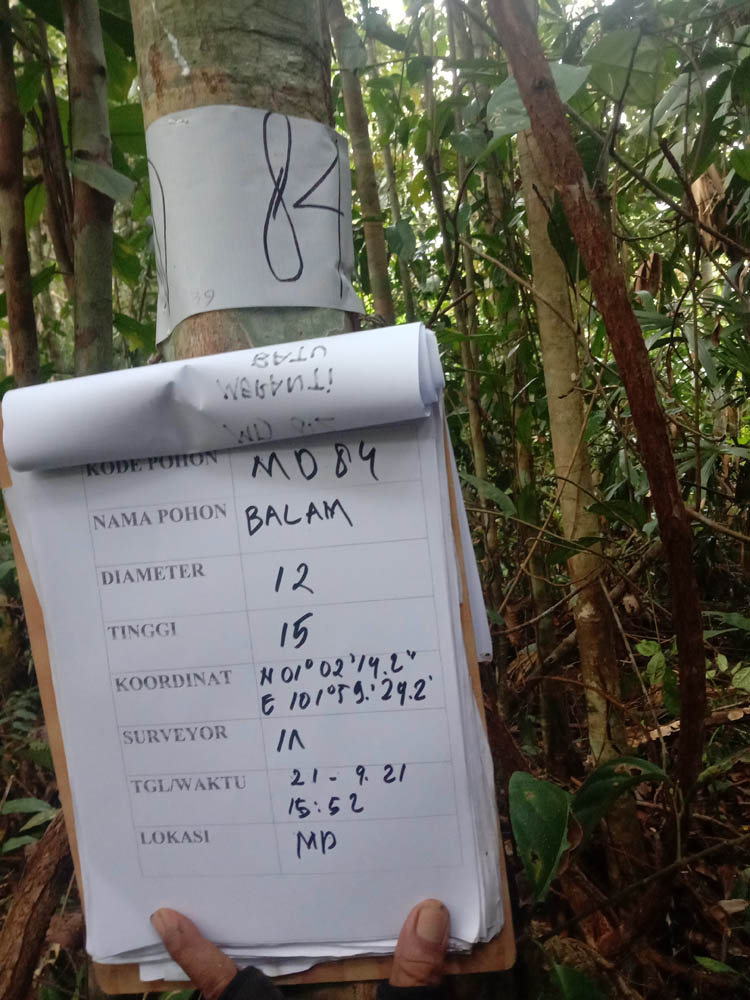 84
KODE POHON MD 84
NAMA POHON BALAM
DIAMETER 12
TINGGI 15
KOORDINAT N 01° 02' 14.2"
E 101° 59.' 29.2'
SURVEYOR
TGL/WAKTU 21 - 9. 21
15:52
LOKASI MD